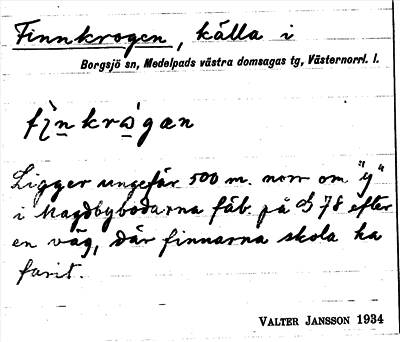 Finnkrogen, källa i
Borgsjö sn, Medelpads västra domsagas tg, Västernorrl. l.
Ligger ungefär 500 m. norr om "y"
i Magdbybodarna fäb. på 78 efter
en väg, där finnarna skola ha
farit.
VALTER JANSSON 1934